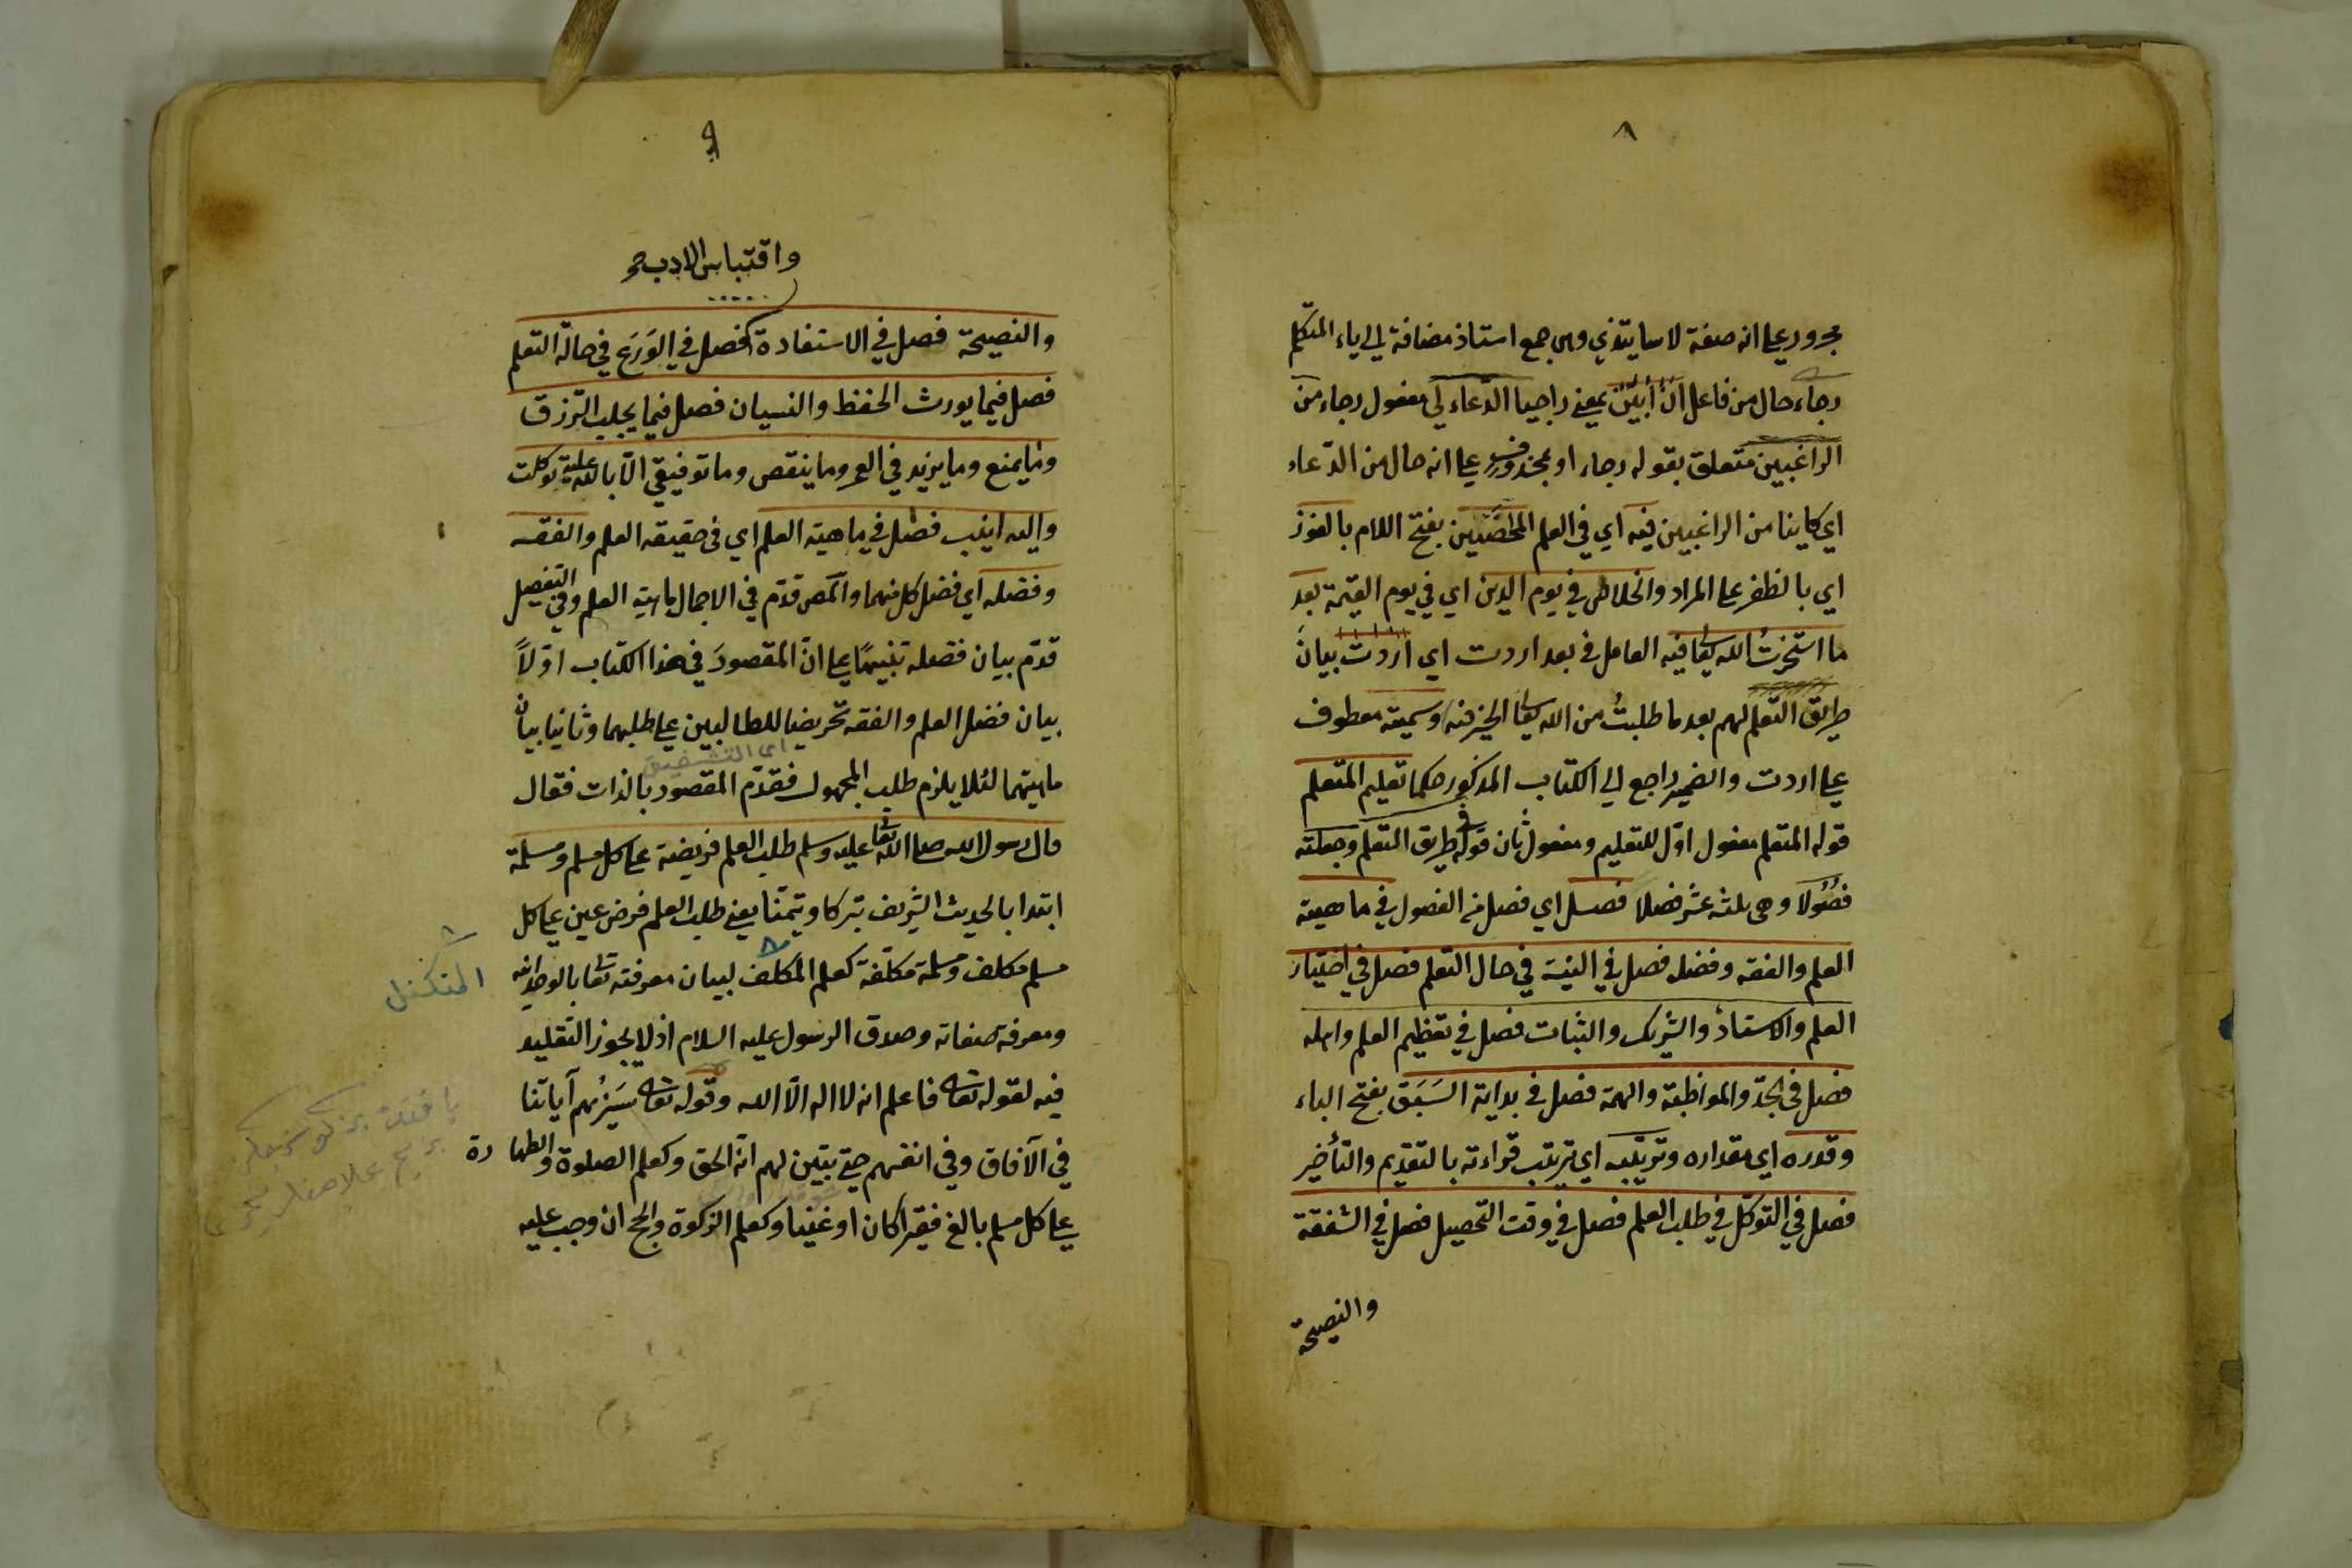 ٨
مجرور على انه صفة لاساتيذي وهي جمع استاذ مضافة الى ياء المتكلم
رجاء حال من فاعل ان أبين بمعنى راجيا الدّعاء لي مفعول رجاء من
الراغبين متعلق بقوله رجاء او بمحذوف على انه حال من الدّعاء
اي كاينا من الراغبين فيه اي في العلم المخلصين بفتح اللام بالفوز
اي بالظفر على المراد والخلاص في يوم الدين اي في يوم القيمة بعد
ما استخرتُ الله تعا فيه العامل في بعد اردت اي اردت بيان
طريق التعلم لهم بعد ما طلبتُ من الله تعا الخير فيه وسميته معطوف
على اردت والضمير راجع الى الكتاب المذكور حكما تعليم المتعلم
قوله المتعلم مفعول اوّل للتعليم ومفعول ثان قوله في طريق التعلم وجعلته
فصُولا وهي ثلثة عشر فصلا فصل اي فصل من الفصول في ماهية
العلم والفقه وفضله فصل في النية في حال التعلم فصل في اختيار
العلم والاستاذ والشريك والثبات فصل في تعظيم العلم واهله
فصل في الجدّ والمواظبة والهمة فصل في بداية السَبَق بفتح الباء
وقدره اي مقداره وترتيبه اي ترتيب قراءته بالتقديم والتأخير
فصل في التوكّل في طلب العلم فصل في وقت التحصيل فصل في الشفقة
والنصيحة
٩
واقتباس الادب صح
والنصيحة فصل في الاستفادة فصل في الوَرَع في حالة التعلم
فصل فيما يورث الحفظ والنسيان فصل فيما يجلب الرّزق
وما يمنع وما يزيد في العمر وما ينقص وما توفيقي الّا بالله عليه توكلت
واليه انيب فصل في ماهية العلم اي في حقيقة العلم والفقه
وفضله اي فضل كل منهما والمص قدّم في الاجمال ماهية العلم وفي التفصيل
قدّم بيان فضله تنبيهًا على انّ المقصودَ في هذا الكتاب اوّلاً
بيان فضل العلم والفقه تحريضا للطالبين على طلبهما وثانيا بيان
اى التشويق
ماهيتهما لئلا يلزم طلب المجهول فقدّم المقصود بالذات فقال
قال رسول الله صلى الله تعا عليه وسلم طلب العلم فريضة على كل مسلم ومسلمة
ابتدا بالحديث الشريف تبركا وتيمّنا يعني طلب العلم فرض عين على كل
مسلم مكلف ومسلمة مكلّفة كعلم المكلف لبيان معرفته تعا بالوحدانية
ومعرفة صفاته وصدق الرسول عليه السلام اذ لا يجوز التقليد
فيه لقوله تعا فاعلم انه لا اله الّا الله وقوله تعا سَنُرِيهم آياتنا
في الآفاق وفي انفسهم حتى يتبيّن لهم انّه الحق وكعلم الصلوة والطهارة
على كل مسلم بالغ فقيرا كان او غنيا وكعلم الزكوة والحج ان وجب عليه